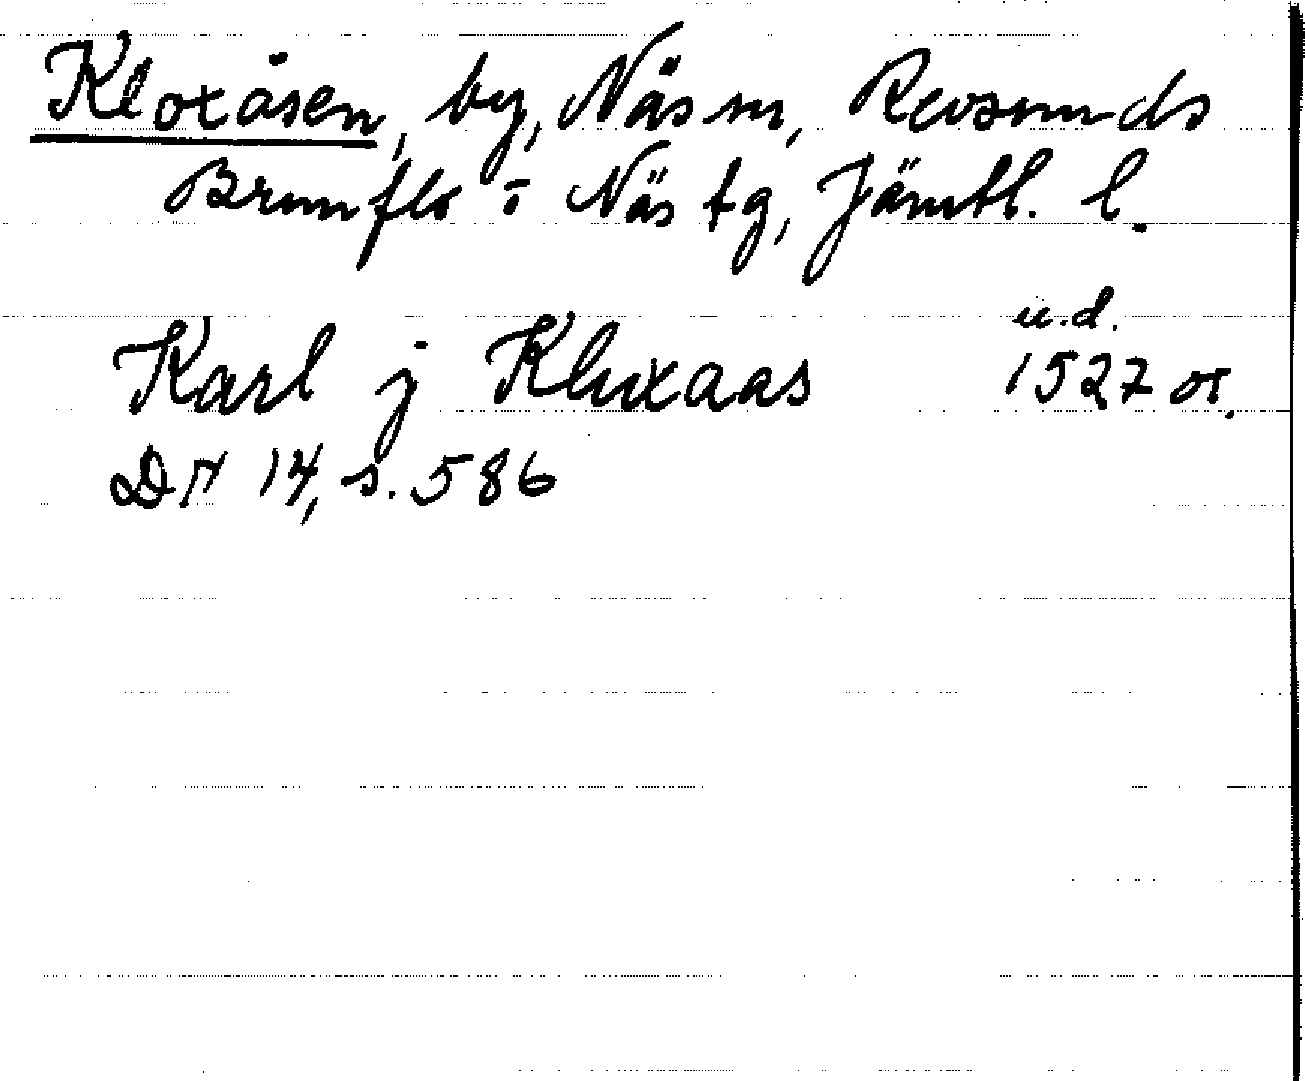 Kloxåsen, by, Näs sn, Revsunds
Brunflo o Näs tg, Jämtl. l.
u.d.
Karl j Kluxaas 1527 or.
DN 14, s. 586